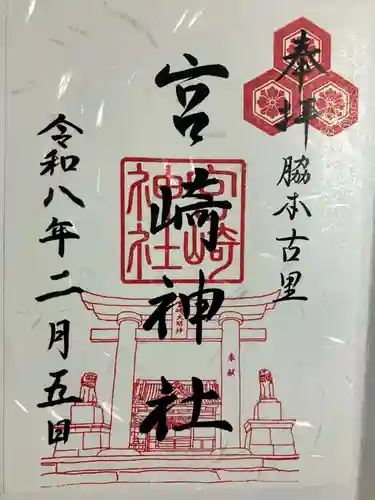 奉拝
脇本古里
宮崎神社
宮崎神社
宮崎大明神
奉献
令和八年二月五日